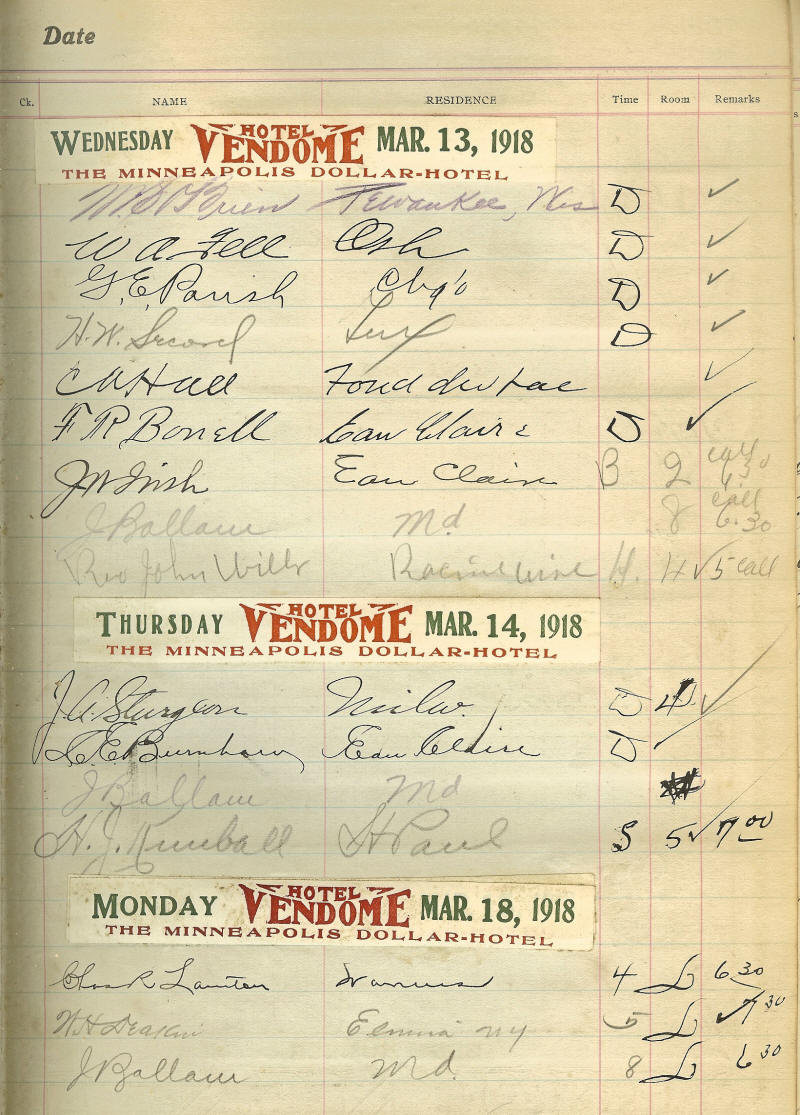 Date
Ck. NAME RESIDENCE Time Room Remarks
WEDNESDAY HOTEL VENDOME MAR. 13, 1918
THE MINNEAPOLIS DOLLAR-HOTEL
W. S. O'Brien Pewaukee, Wis D ✓
W A Fell Osh D ✓
G. E. Parish Chg'o D ✓
H. W. Secord D ✓
C A Hall Fond du Lac ✓
F R Bonell Eau Claire D ✓
J W Irish Eau Claire B 2 call 6 30
J Ballam Md 8 call 6.30
Rev John Wills Racine Wisc H. 4 ✓ 5 call
THURSDAY HOTEL VENDOME MAR. 14, 1918
THE MINNEAPOLIS DOLLAR-HOTEL
J. A. Sturgeon Milw. D 4 ✓
E. Burnham Eau Claire D ✓
J Ballam Md
H. J. Kimball St Paul S 5 ✓ 7 00
MONDAY HOTEL VENDOME MAR. 18, 1918
THE MINNEAPOLIS DOLLAR-HOTEL
Chas R 4 L 6 30
W H Deakin Elmira NY 5 L ✓ 7 30
J Ballam Md. 8 L 6 30